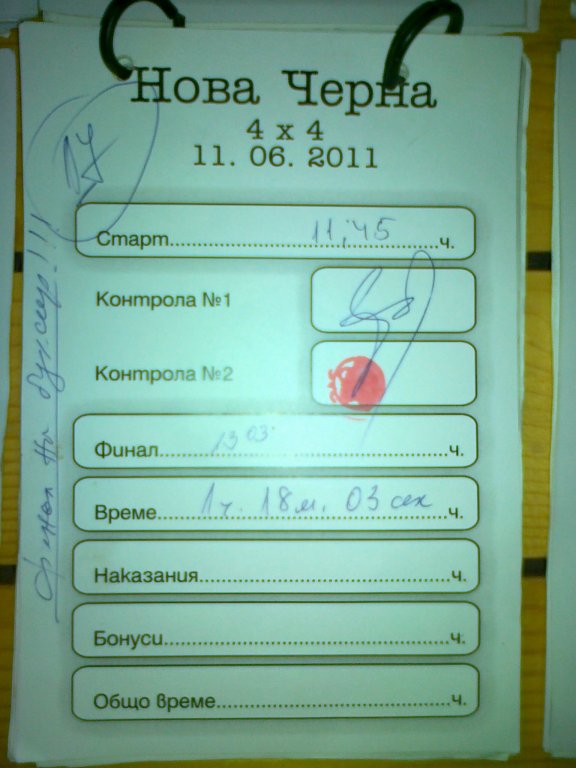 Нова Черна
4 x 4
11. 06. 2011
17
Старт 11:45 ч.
Контрола №1
Контрола №2
Финал 13 03 ч.
Време 1 ч. 18 м. 03 сек ч.
Наказания ч.
Бонуси ч.
Общо време ч.
Финал на буксир!!!